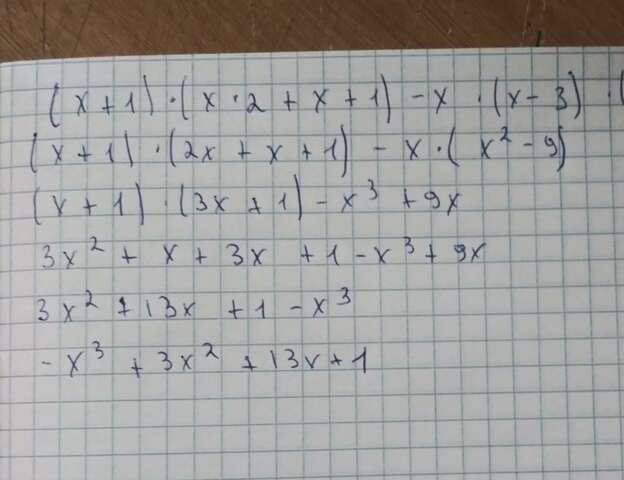 (x+1)·(x·2+x+1)-x·(x-3)·(
(x+1)·(2x+x+1)-x·(x²-9)
(x+1)·(3x+1)-x³+9x
3x²+x+3x+1-x³+9x
3x²+13x+1-x³
-x³+3x²+13x+1